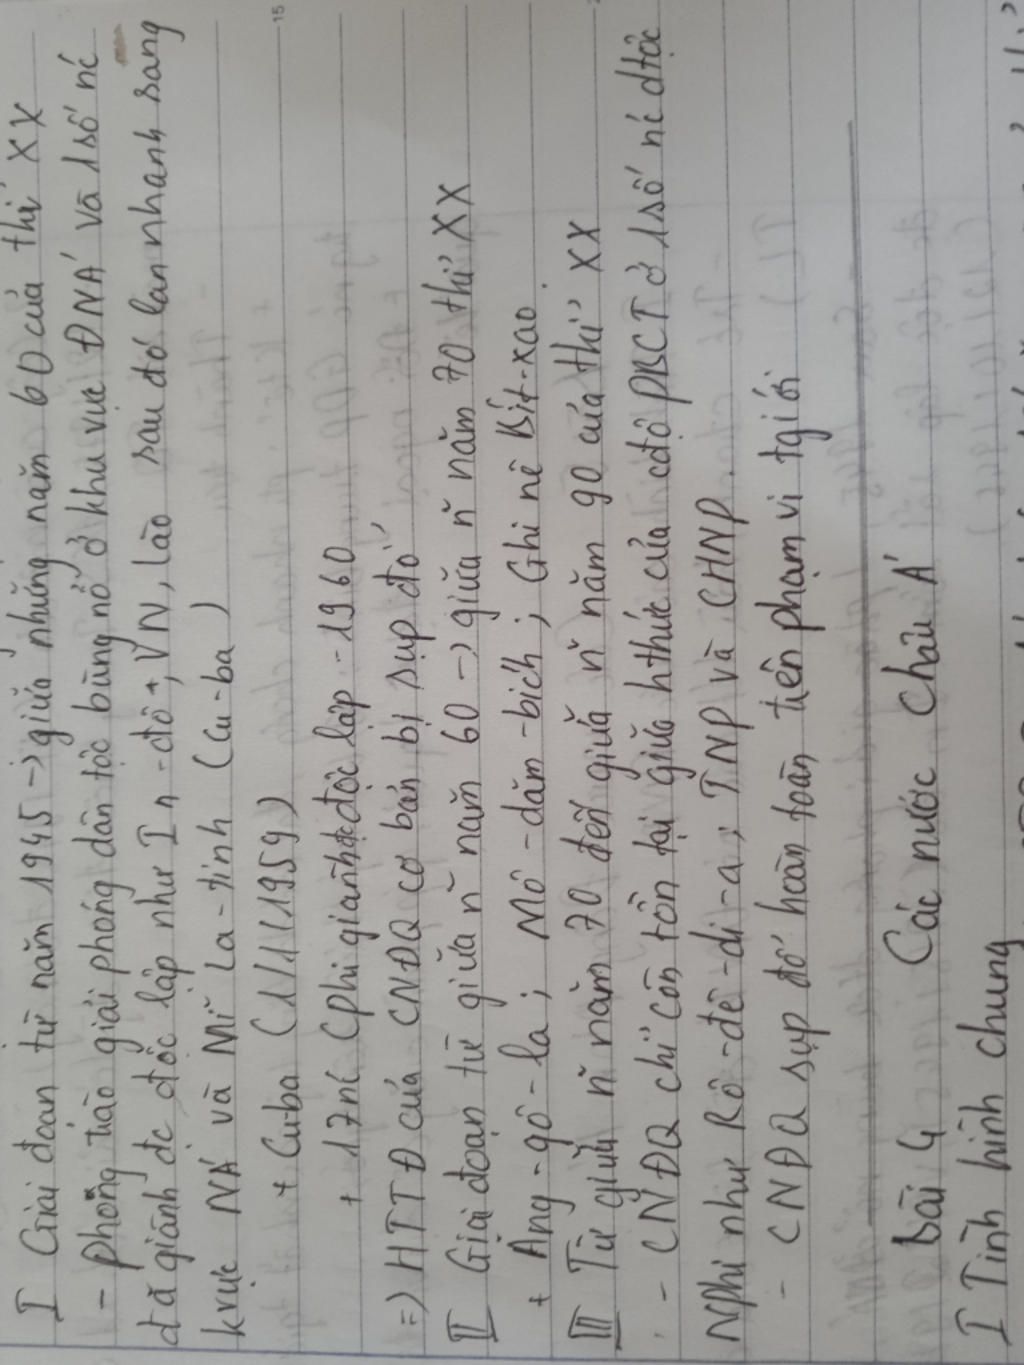 I Giai đoạn từ năm 1945 -> giữa những năm 60 của thỉ XX
- phong trào giải phóng dân tộc bùng nổ ở khu vực ĐNÁ và 1 số nc
đã giành đc độc lập như In-đô+, VN, Lào sau đó lan nhanh sang
kvực NÁ và Mĩ La-tinh (Cu-ba)
+ Cu-ba (1/1/1959)
+ 17nc Cphi giành đc độc lập - 1960
=) HTTĐ của CNĐQ cơ bản bị sụp đổ
II Giai đoạn từ giữa n~ năm 60 -> giữa n~ năm 70 thỉ XX
+ Ang-gô-la; Mô-dăm-bich; Ghi nê Bit-xao.
III Từ giữa n~ năm 70 đến giữa n~ năm 90 của thỉ XX
- CNĐQ chỉ còn tồn tại giữa hthức của cđộ PBCT ở 1 số nc dtộc
Nphi như Rô-đê-di-a; TNP và CHNP.
- CNĐQ sụp đổ hoàn toàn trên phạm vi tgiới
Bài 4 Các nước Châu Á
I Tình hình chung